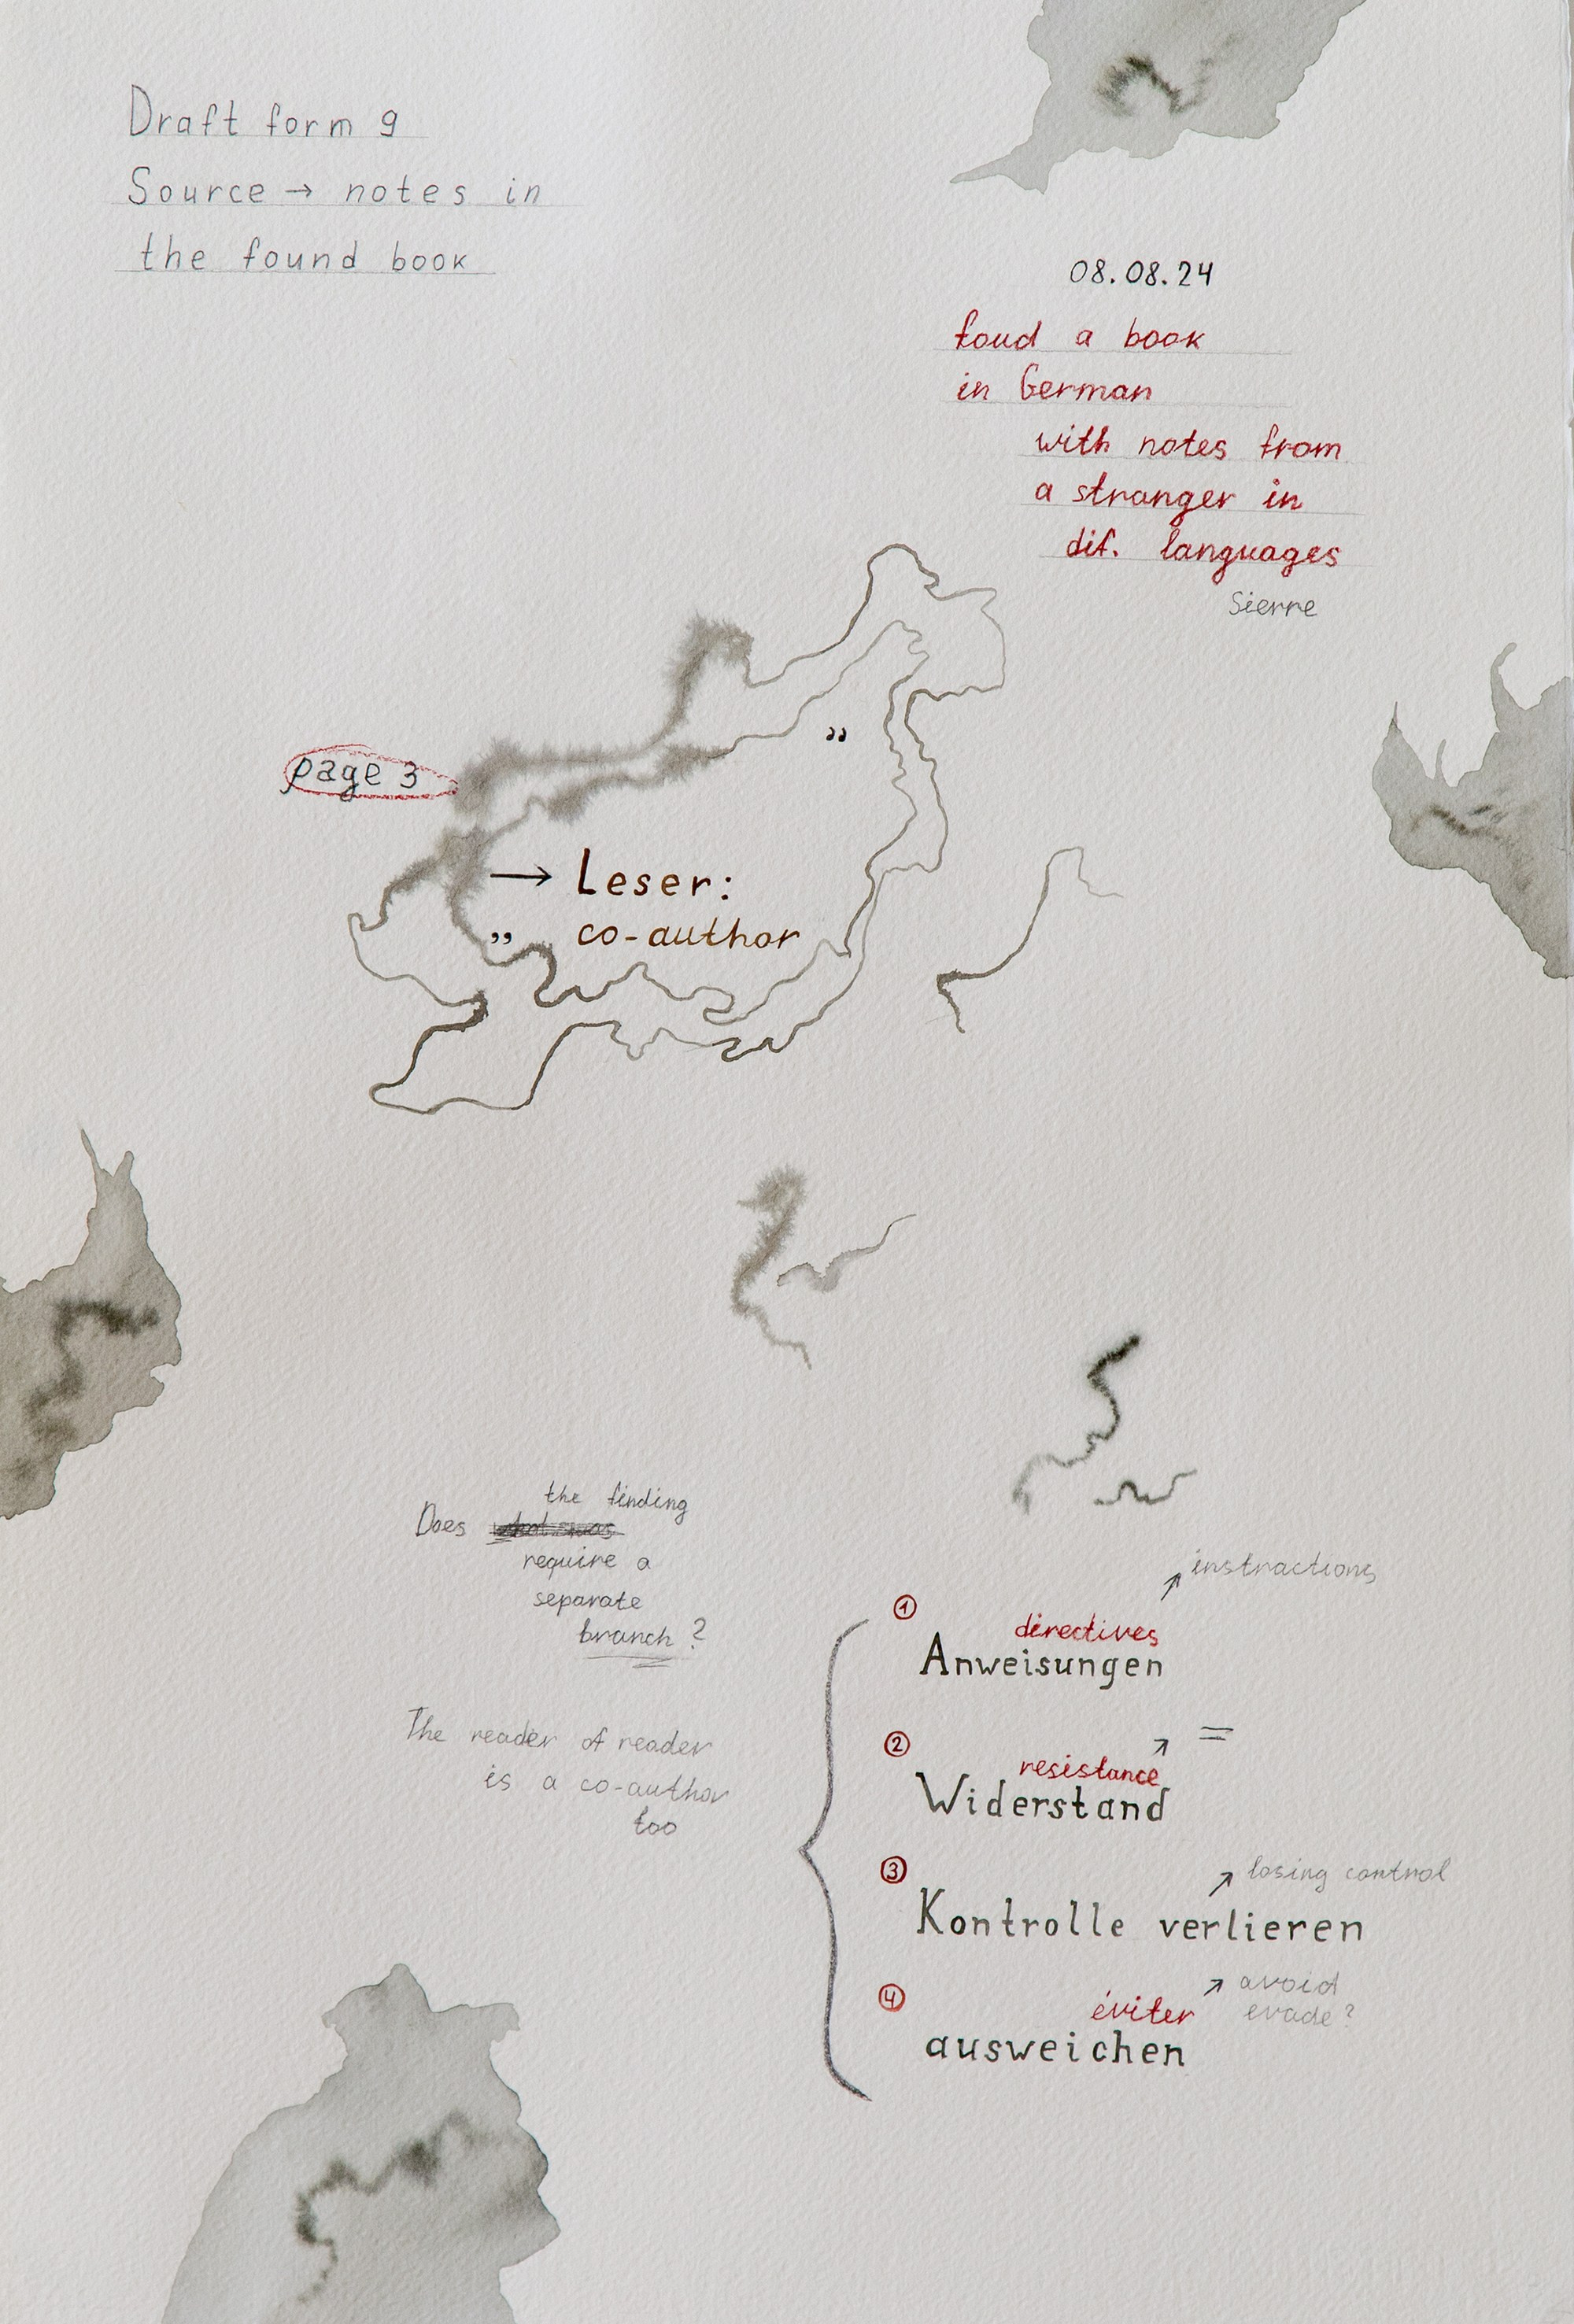 Draft form 9
Source → notes in
the found book
08.08.24
foud a book
in German
with notes from
a stranger in
dif. languages
Sierre
page 3
”
→ Leser:
” co-author
the finding
Does
require a
separate
branch?
The reader of reader
is a co-author
too
① ↗ instractions
directives
Anweisungen
② ↗ =
resistance
Widerstand
③ ↗ losing control
Kontrolle verlieren
④ ↗ avoid
éviter evade?
ausweichen